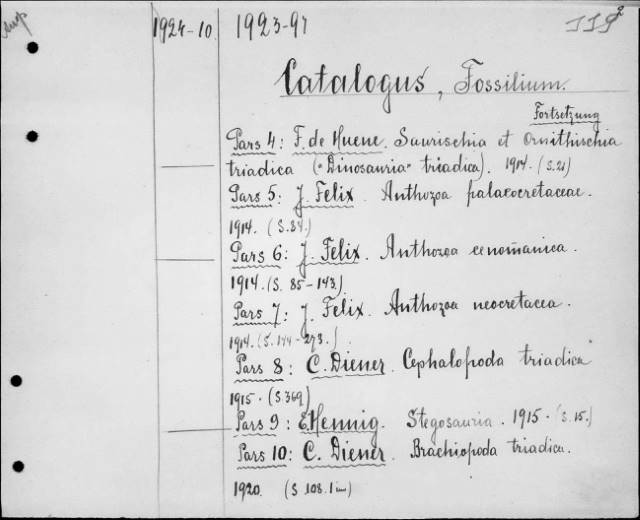 1924-10. 1923-97
Catalogus, Fossilium.
Fortsetzung
Pars 4: F. de Huene. Saurischia et Ornithischia
triadica ("Dinosauria" triadica). 1914. (S. 21)
Pars 5: J. Felix. Anthozoa palaeocretaceae.
1914. (S. 84.)
Pars 6: J. Felix. Anthozoa cenomanica.
1914. (S. 85-143)
Pars 7: J. Felix. Anthozoa neocretacea.
1914. (S. 144-273.)
Pars 8: C. Diener. Cephalopoda triadica
1915. (S. 369)
Pars 9: E. Hennig. Stegosauria. 1915. (S. 15.)
Pars 10: C. Diener. Brachiopoda triadica.
1920. (S 108.